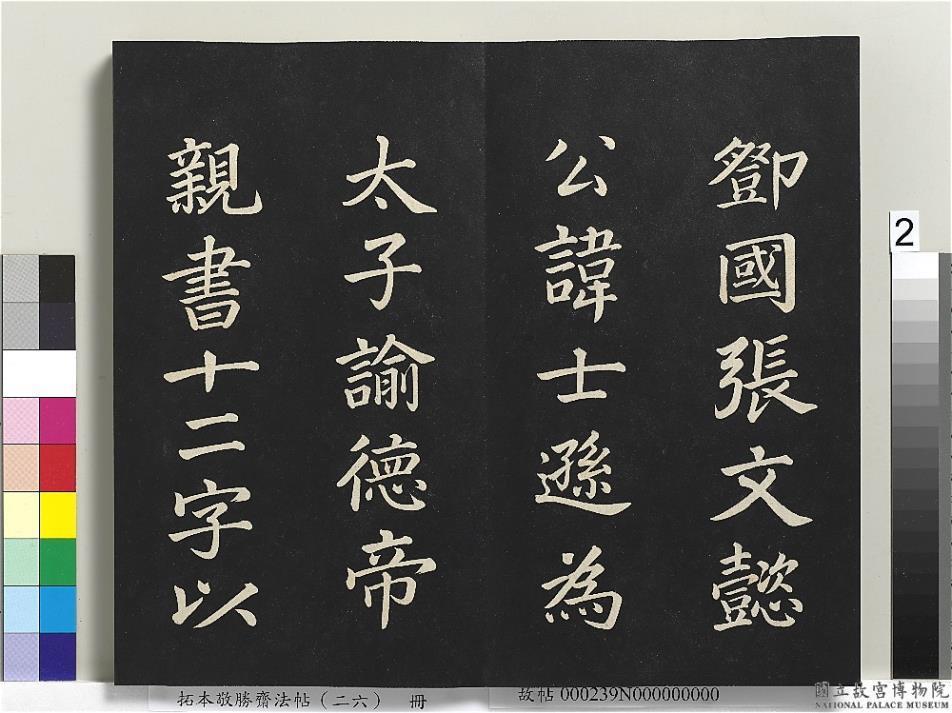 鄧國張文懿
公諱士遜為
太子諭德帝
親書十二字以
2
拓本敬勝齋法帖（二六） 冊
故帖000239N000000000
國立故宮博物院
NATIONAL PALACE MUSEUM